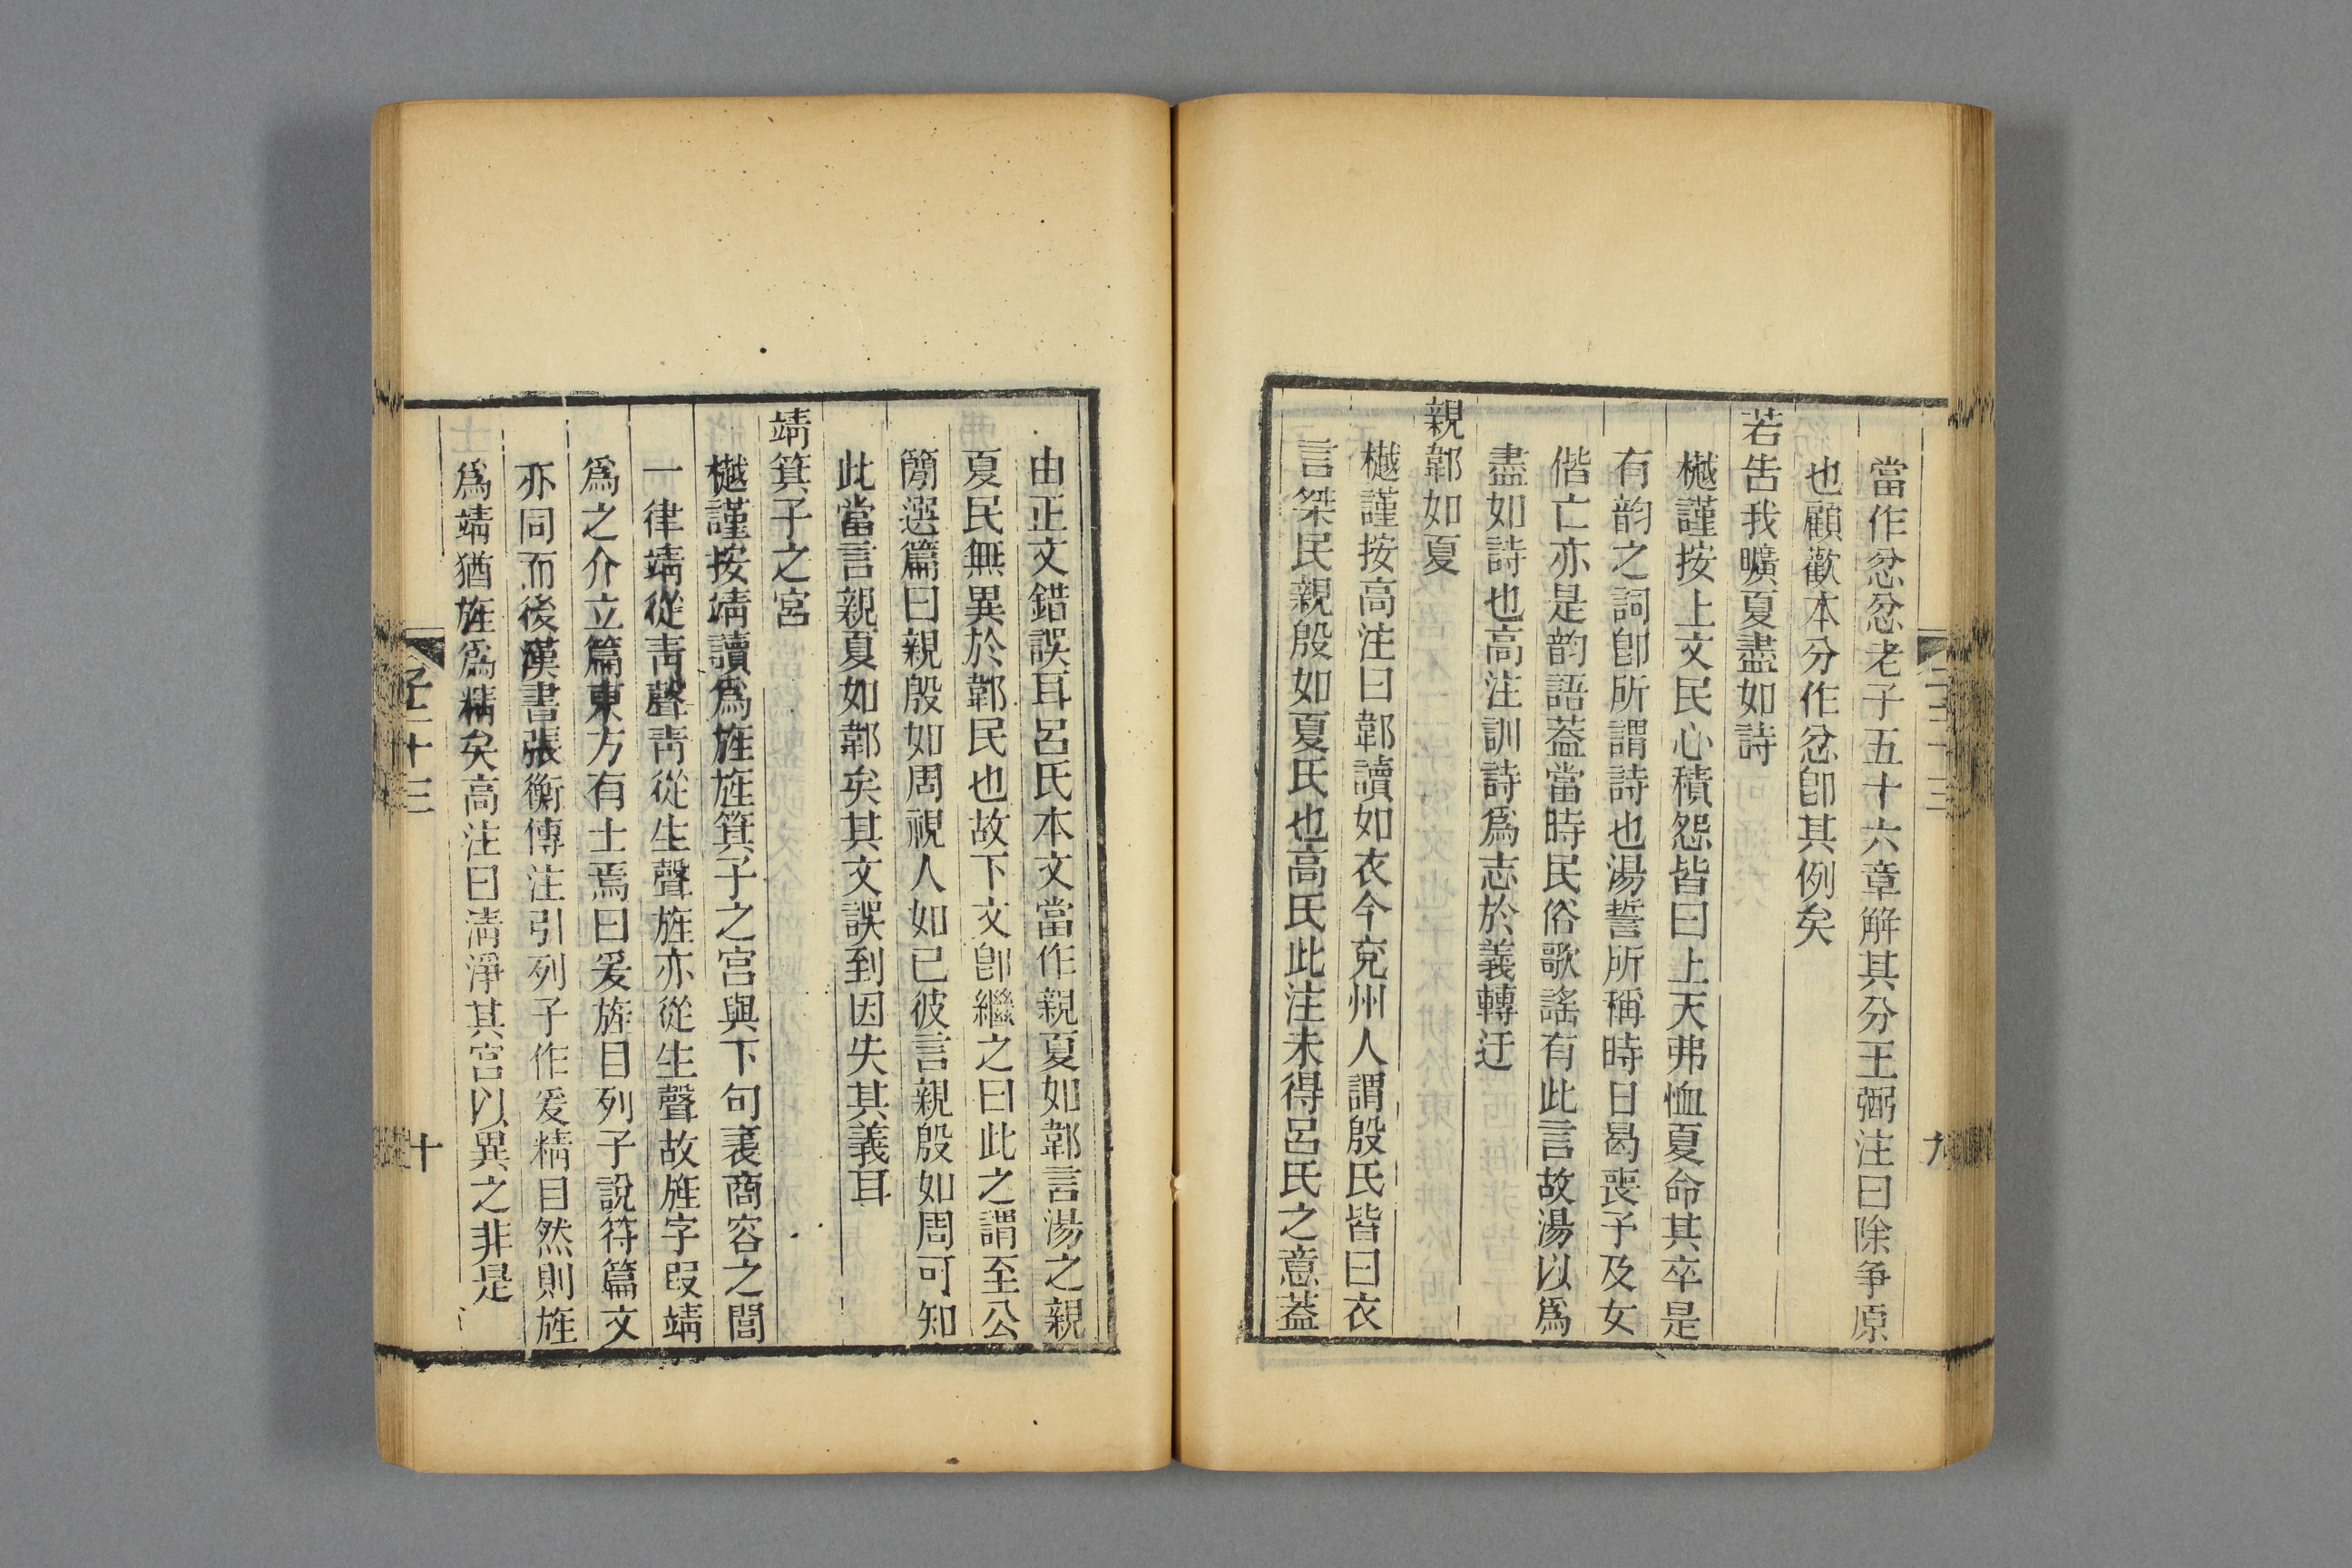 當作忿忿老子五十六章解其分王弼注曰除爭原
也顧歡本分作忿卽其例矣
若告我曠夏盡如詩
樾謹按上文民心積怨皆曰上天弗恤夏命其卒是
有韵之詞卽所謂詩也湯誓所稱時日曷喪予及女
偕亡亦是韵語葢當時民俗歌謠有此言故湯以爲
盡如詩也高注訓詩爲志於義轉迂
親郼如夏
樾謹按高注曰郼讀如衣今兗州人謂殷氏皆曰衣
言桀民親殷如夏氏也高氏此注未得呂氏之意葢
由正文錯誤耳呂氏本文當作親夏如郼言湯之親
夏民無異於郼民也故下文卽繼之曰此之謂至公
簡選篇曰親殷如周視人如己彼言親殷如周可知
此當言親夏如郼矣其文誤到因失其義耳
靖箕子之宮
樾謹按靖讀爲旌旌箕子之宮與下句表商容之閭
一律靖從靑聲靑從生聲旌亦從生聲故旌字叚靖
爲之介立篇東方有士焉曰爰旌目列子說符篇文
亦同而後漢書張衡傳注引列子作爰精目然則旌
爲靖猶旌爲精矣高注曰淸淨其宮以異之非是
子二十三
十
九